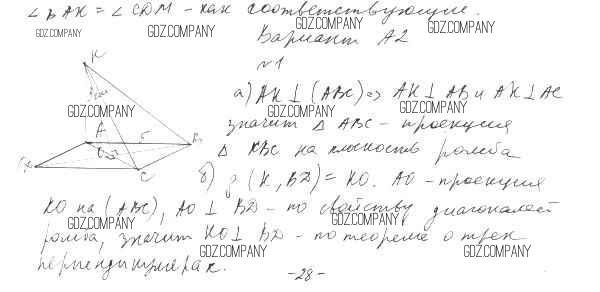 ∠BAK = ∠CDM - как соответствующие.
GDZ.COMPANY GDZ.COMPANY GDZ.COMPANY GDZ.COMPANY
Вариант А2
№1
K
а) AK ⊥ (ABC) => AK ⊥ AB и AK ⊥ AC
GDZ.COMPANY GDZ.COMPANY
значит Δ ABC - проекция
A 5 B
Δ KBC на плоскость ромба
O
C
б) ρ(K, BD) = KO. AO - проекция
KO на (ABC), AO ⊥ BD - по свойству диагоналей
GDZ.COMPANY GDZ.COMPANY
ромба, значит KO ⊥ BD - по теореме о трех
GDZ.COMPANY GDZ.COMPANY
перпендикулярах.
-28-